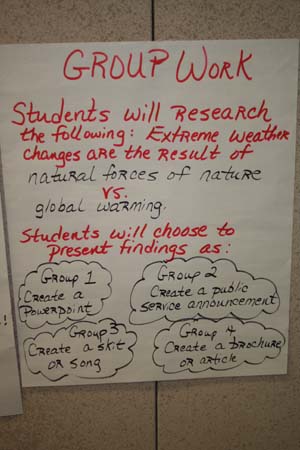 GROUP WORK
Students will Research
the following: Extreme weather
changes are the result of
natural forces of nature
vs.
global warming.
Students will choose to
present findings as:
Group 1
Create a
Powerpoint
Group 2
Create a public
service announcement
Group 3
Create a skit
or song
Group 4
Create a brochure
or article
!